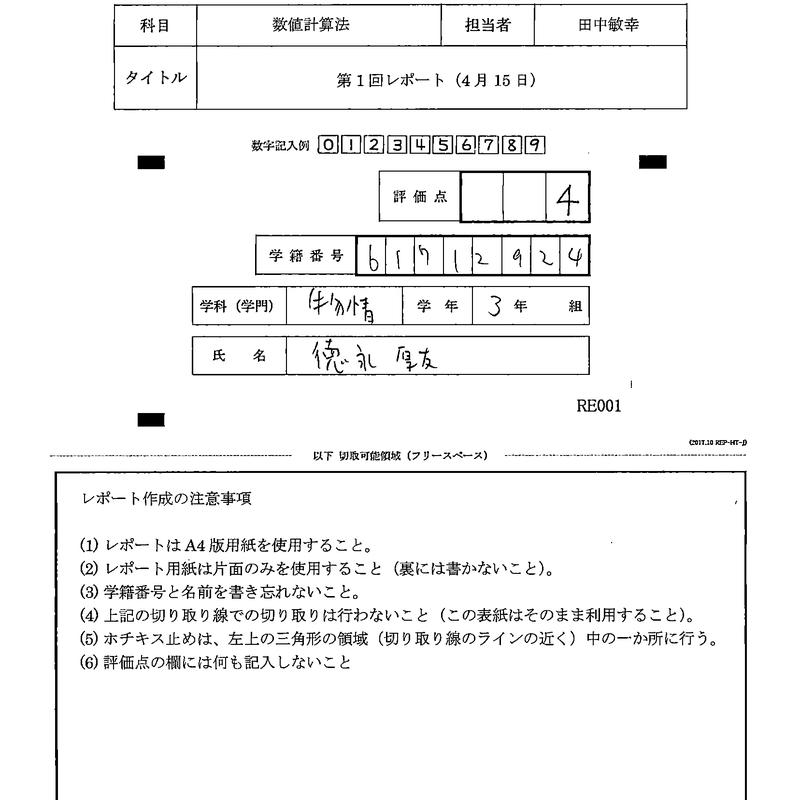 科目 数値計算法 担当者 田中敏幸
タイトル 第1回レポート（4月15日）
数字記入例 0 1 2 3 4 5 6 7 8 9
評価点 4
学籍番号 6 1 7 1 2 9 2 4
学科（学門） 物情 学年 3年 組
氏名 德永 厚友
RE001
(2017.10 REP-HT-J)
以下 切取可能領域（フリースペース）
レポート作成の注意事項
(1) レポートは A4 版用紙を使用すること。
(2) レポート用紙は片面のみを使用すること（裏には書かないこと）。
(3) 学籍番号と名前を書き忘れないこと。
(4) 上記の切り取り線での切り取りは行わないこと（この表紙はそのまま利用すること）。
(5) ホチキス止めは、左上の三角形の領域（切り取り線のラインの近く）中の一か所に行う。
(6) 評価点の欄には何も記入しないこと